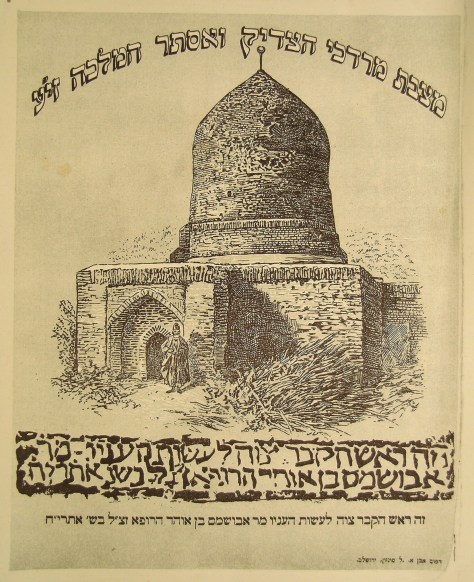 מצבת מרדכי הצדיק ואסתר המלכה זי״ע
זה ראש הקבר צוה לעשות העניו מר
אבושמס בן אוהד הרופא זצ״ל בשנ אתרי״ח
זה ראש הקבר צוה לעשות העניו מר אבושמס בן אוהד הרופא זצ״ל בש׳ אתרי״ח
דפוס אבן א. ל. מונזון, ירושלם.